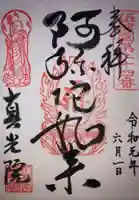 奉拝
阿弥陀如来
真光院
令和元年
六月一日